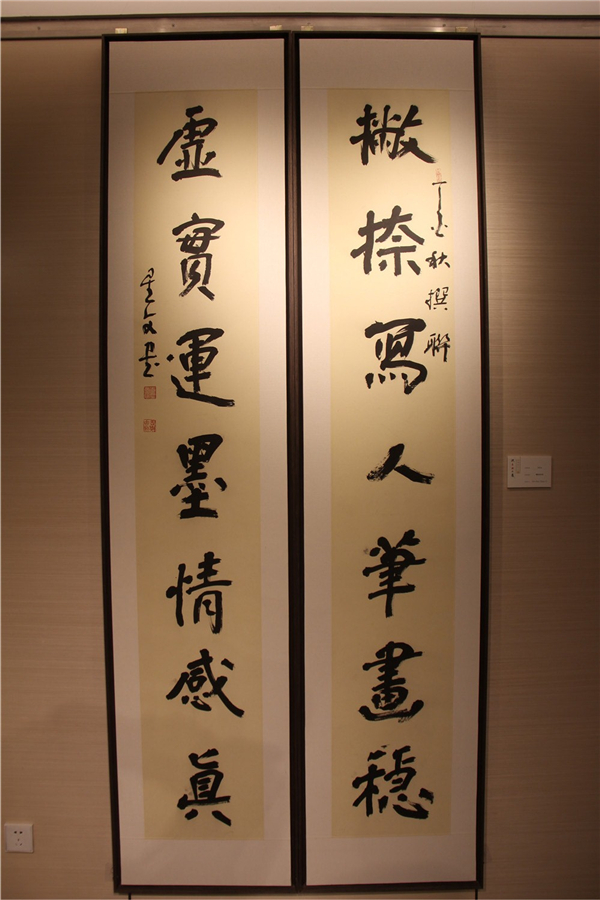 撇捺寫人筆畫穩
秋撰聯
虛實運墨情感真